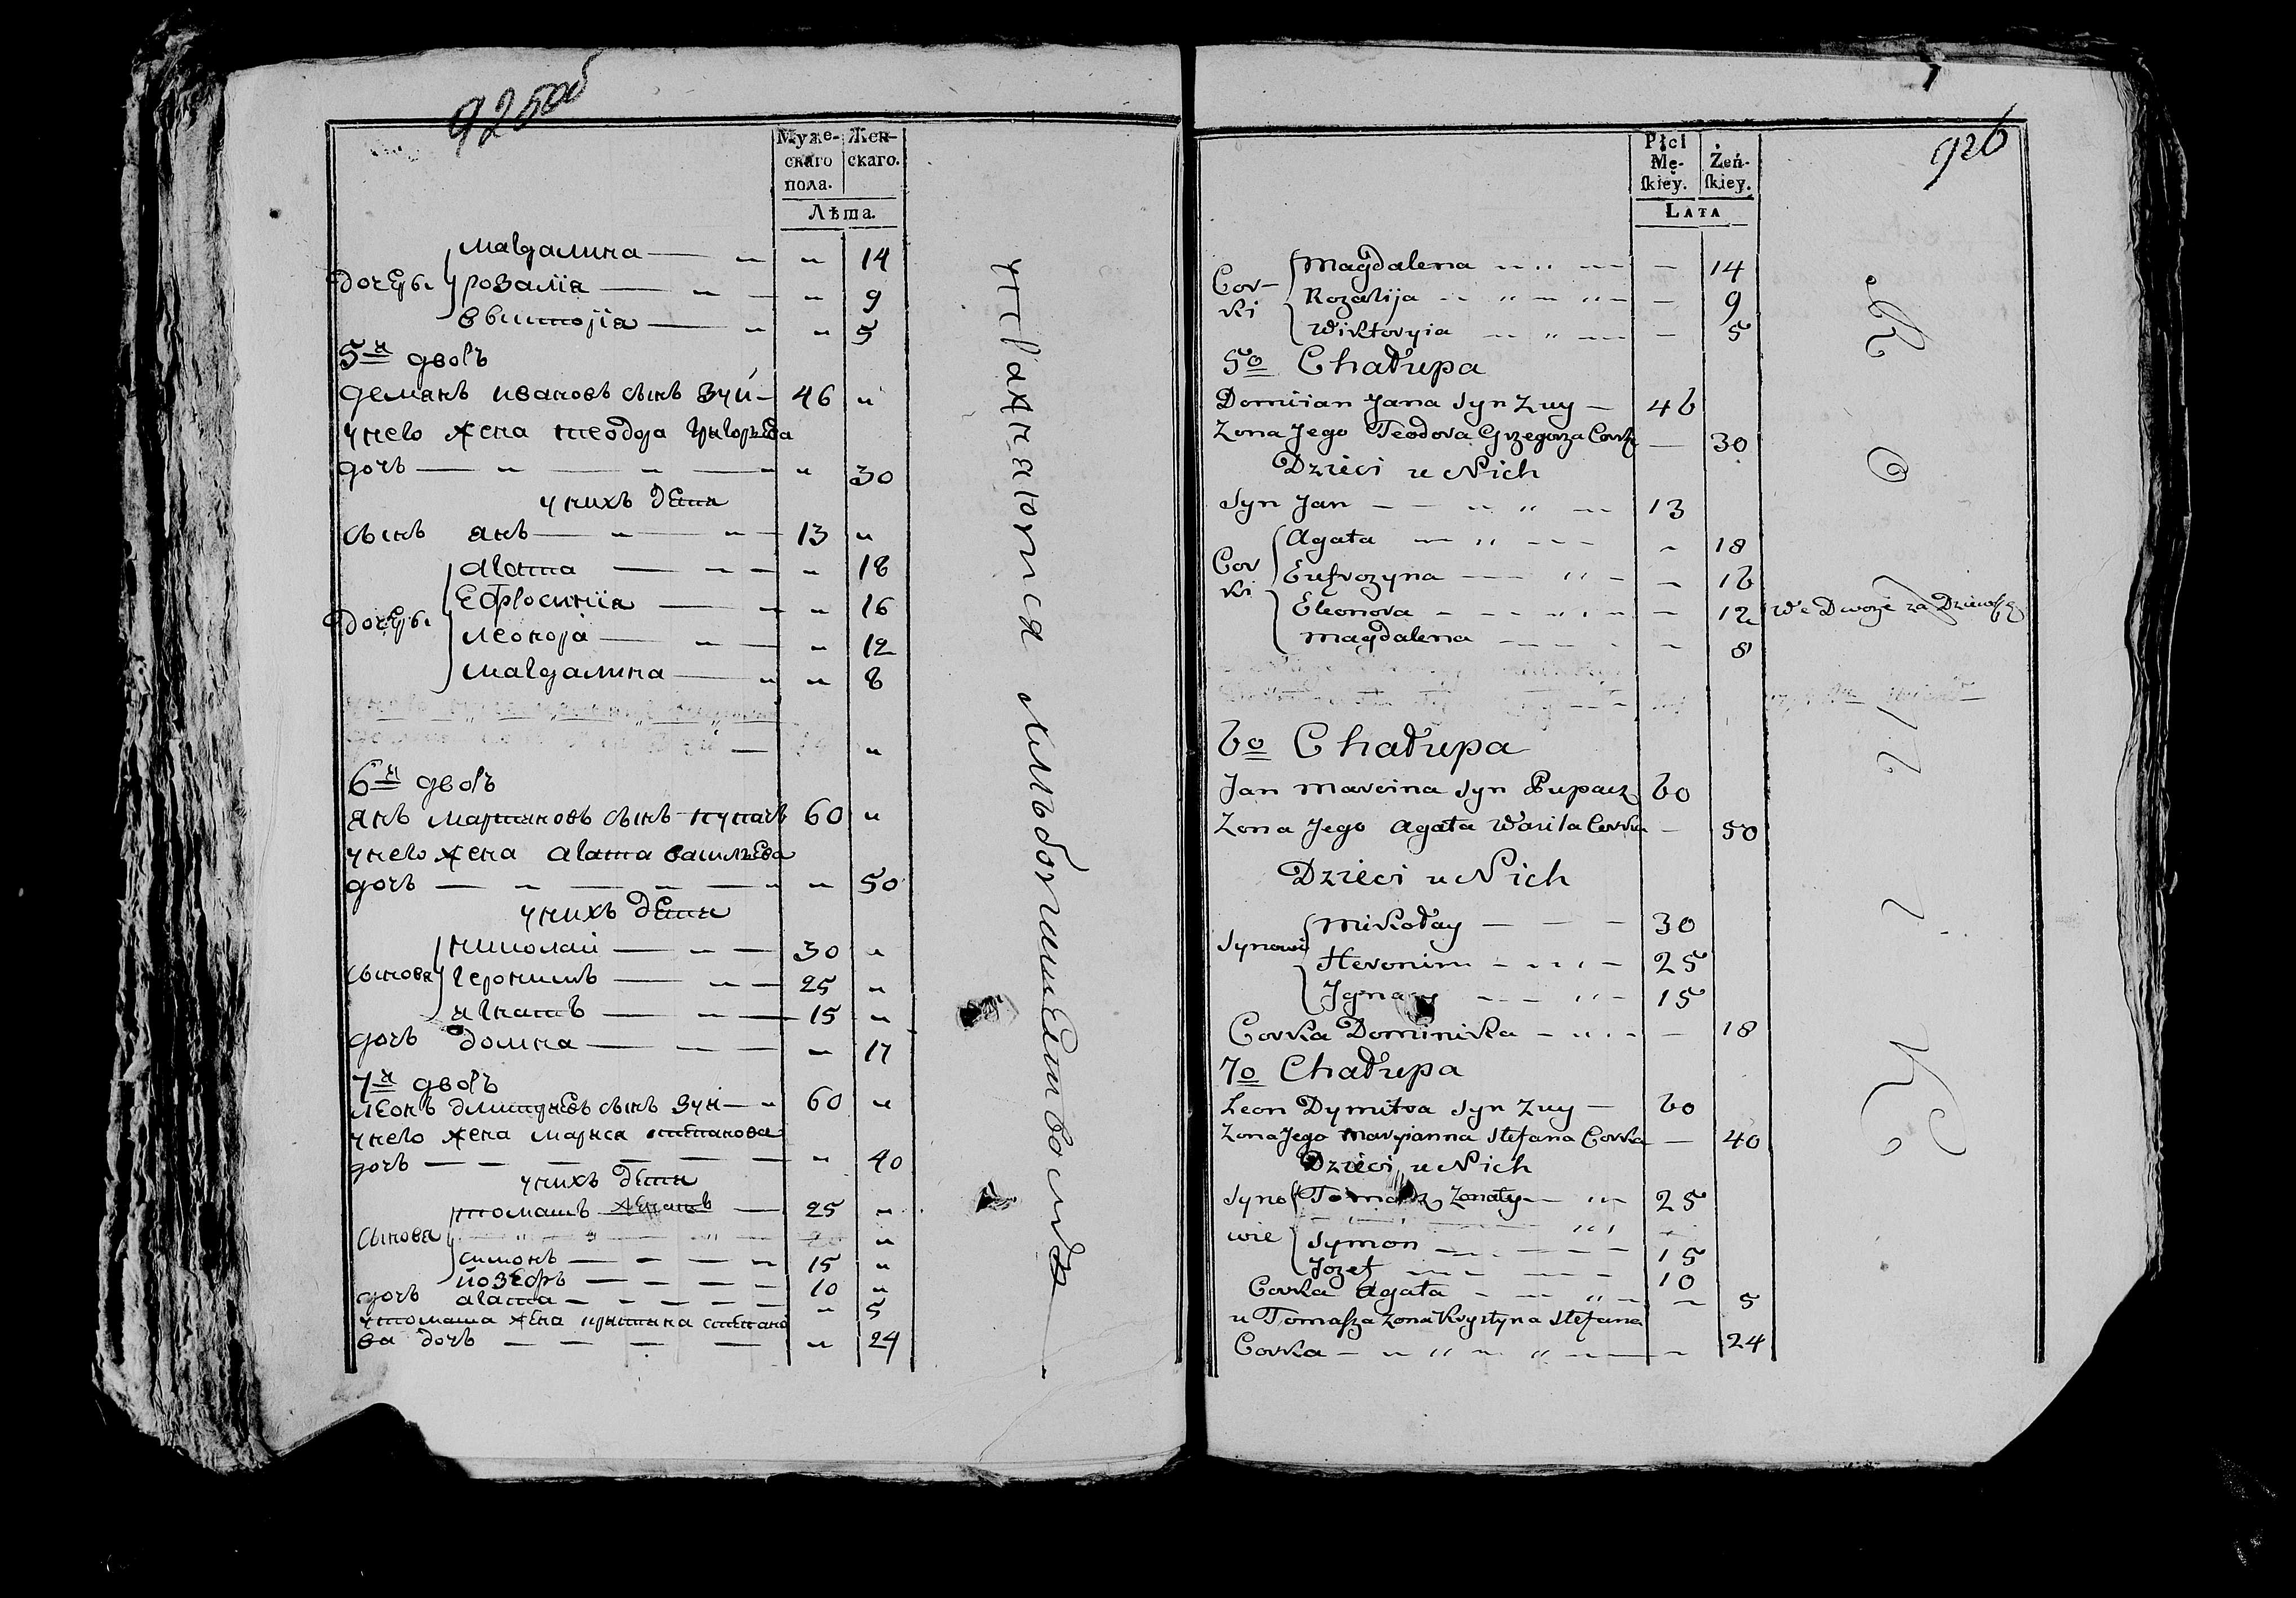 925 об
Муже-
скаго
пола.
Жен-
скаго.
Лѣта.
Магдалина — 14
дочеры Розалiя — 9
Викторiя — 5
5й дворъ
Демянъ Ивановъ сынъ Зуй — 46
у него жена Теодора Григорьева
дочь — 30
у нихъ дети
сынъ Янъ — 13
Агата — 18
Ефросинiя — 16
дочеры Леонора — 12
Магдалина — 8
6й дворъ
Янъ Мартиновъ сынъ Пупачъ 60
у него жена Агата Васильева
дочь — 50
у нихъ дети
Николай — 30
сынова Героримъ — 25
Игнатъ — 15
дочь Домна — 17
7й дворъ
Леонъ Дмитриевъ сынъ Зуй — 60
у него жена Марися Степанова
дочь — 40
у нихъ дети
Томашъ женатъ — 25
сынова
Симонъ — 15
Йозефъ — 10
дочь Агата — 5
у Томаша жена Криштина Степано
ва дочь — 24
926
Płci
Mę-
skiey.
Żeń-
skiey.
LATA
Magdalena — 14
Cor-
ki Rozalija — 9
Wiktoryia — 5
5o Chałupa
Domiian Jana Syn Zuy — 46
Zona Jego Teodora Grzegorza Corka — 30
Dzieci u Nich
Syn Jan — 13
Agata — 18
Cor
ki Eufrozyna — 16
Eleonora — 12 We Dworze za Dziewkę
Magdalena — 8
6o Chałupa
Jan Marcina Syn Pupacz 60
Zona Jego Agata Wasila Corka — 50
Dzieci u Nich
Mikołay — 30
Synowie Heronim — 25
Jgnacy — 15
Corka Dominika — 18
7o Chałupa
Leon Dymitra Syn Zuy — 60
Zona Jego Maryianna Stefana Corka — 40
Dzieci u Nich
Syno Tomasz Zonaty — 25
wie Symon — 15
Jozef — 10
Corka Agata — 5
u Tomasza Zona Krystyna Stefana
Corka — 24